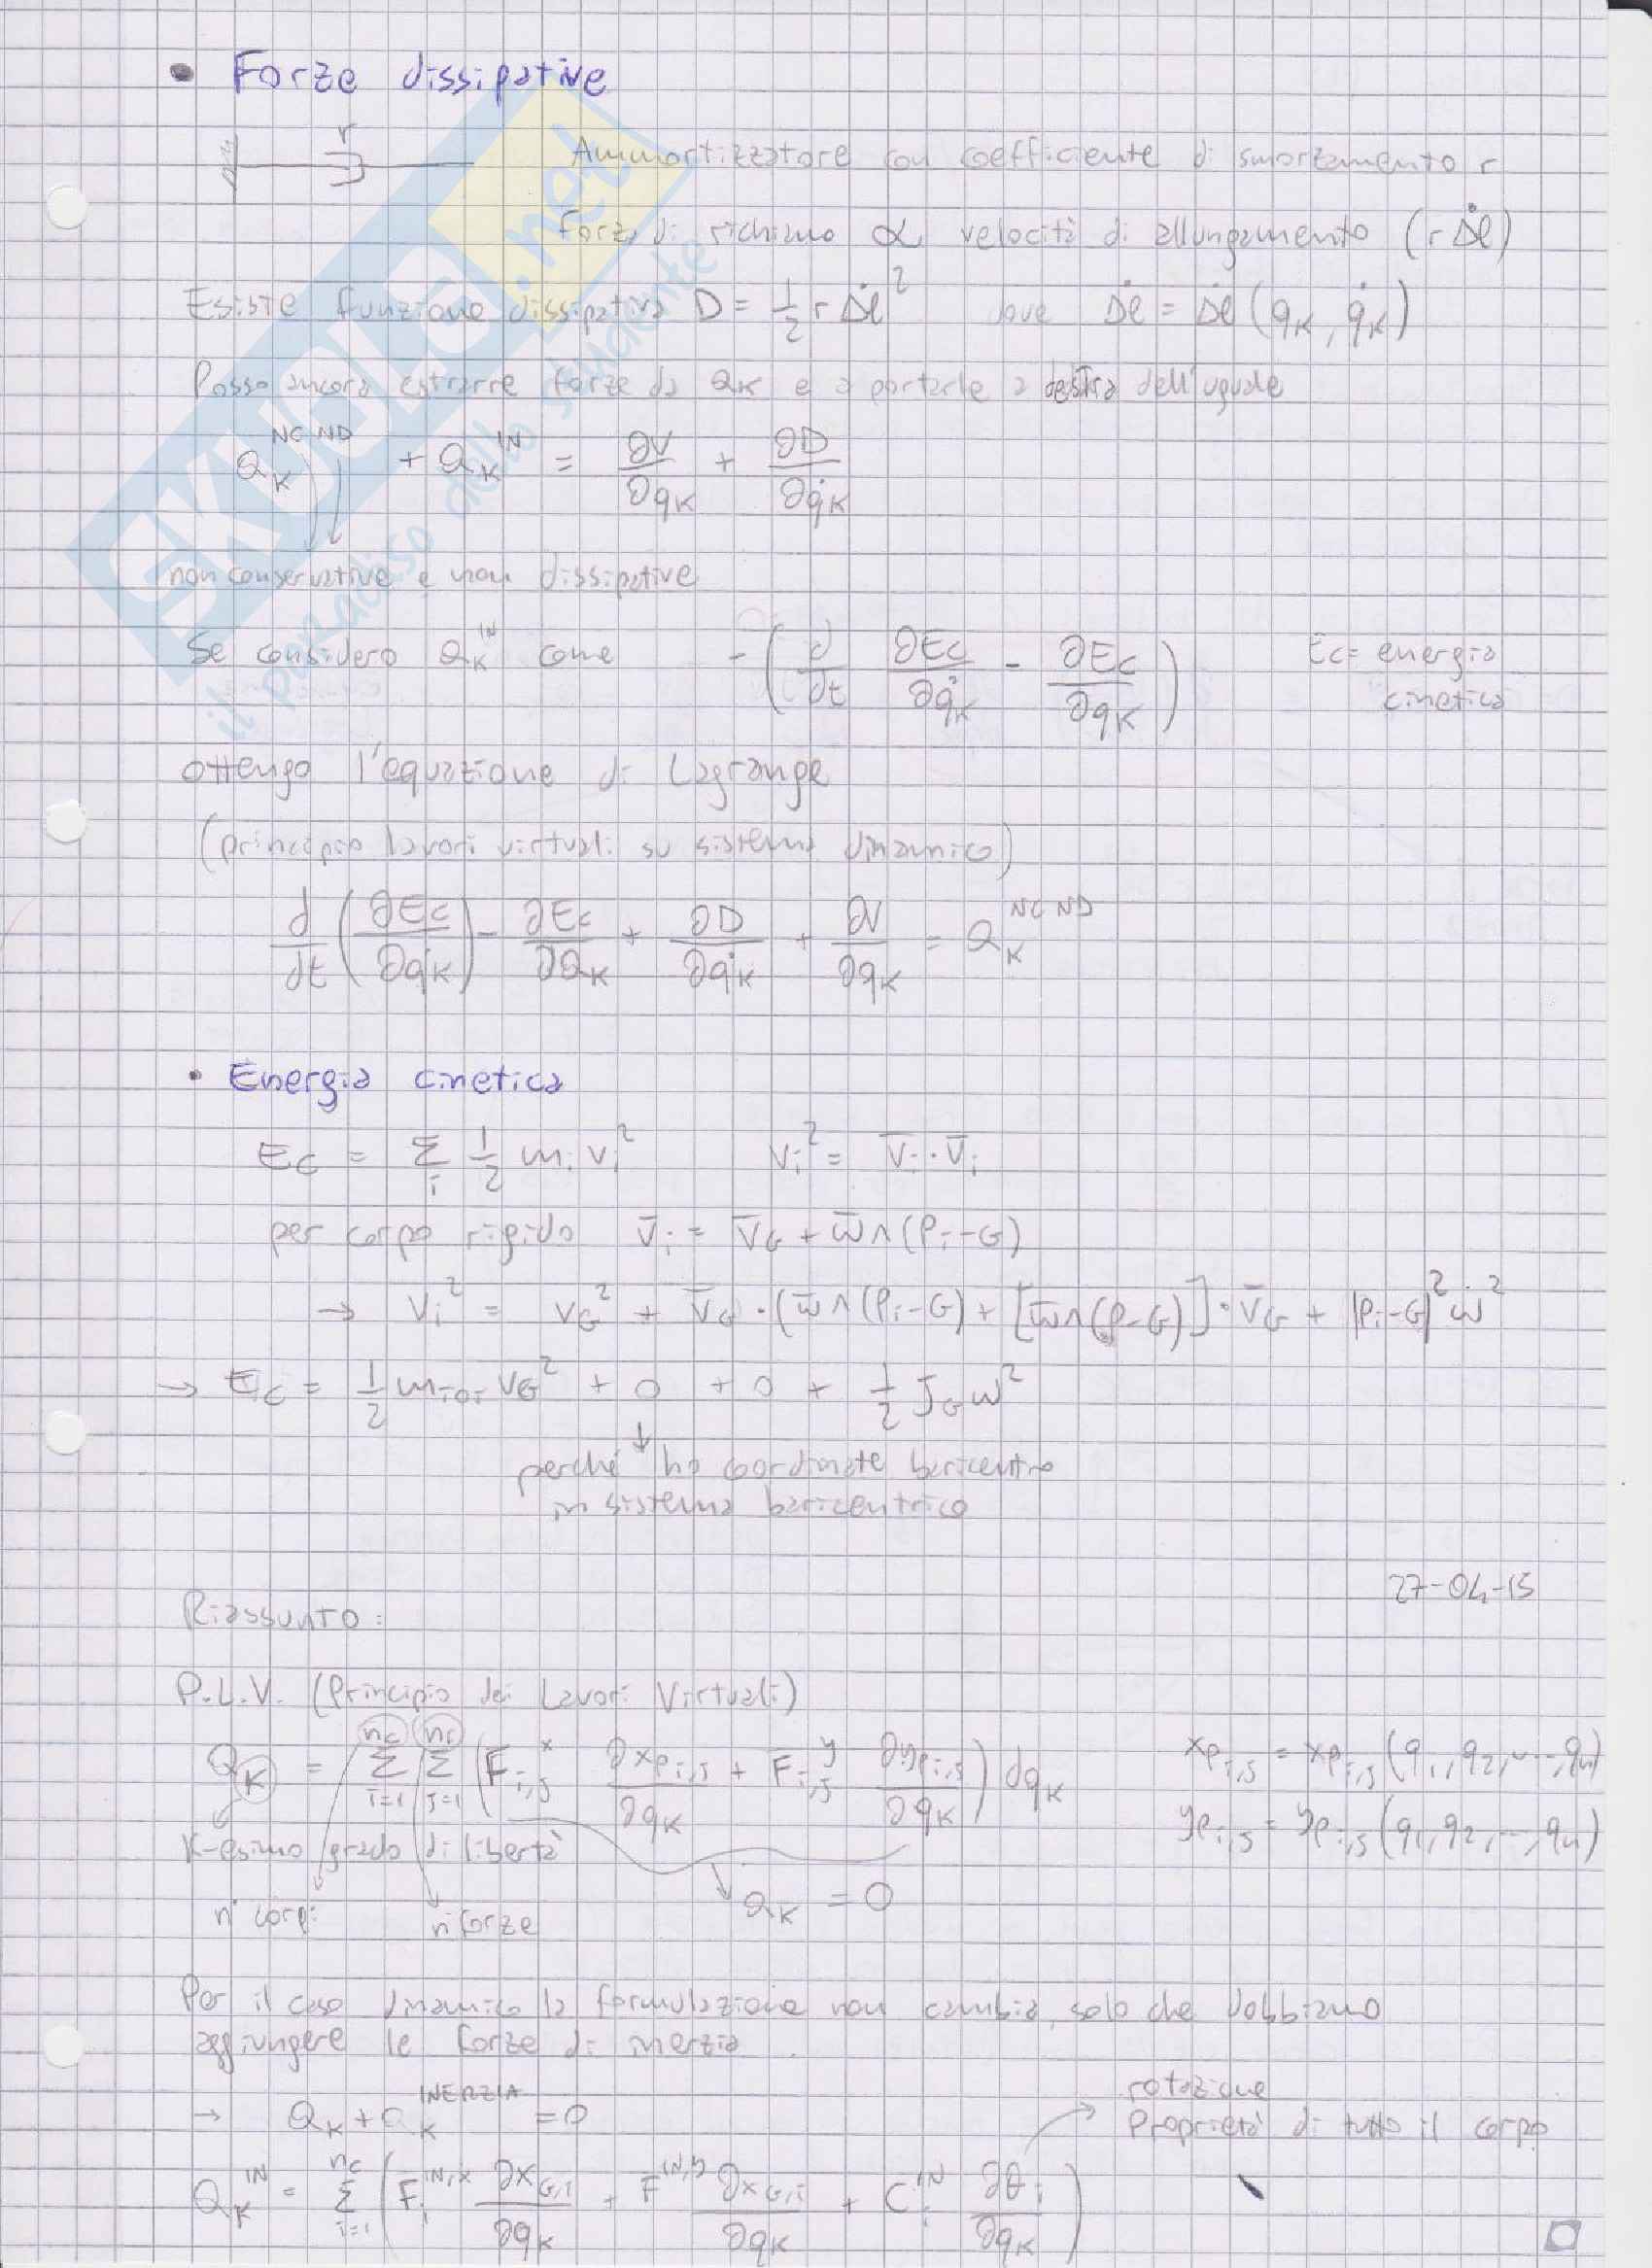 • Forze dissipative
r
Ammortizzatore con coefficiente di smorzamento r
Forza di richiamo ∝ velocità di allungamento (r Δl̇)
Esiste funzione dissipativa D = 1/2 r Δl̇² dove Δl̇ = Δl̇ (qK, q̇K)
Posso ancora estrarre forze da QK e a portarle a destra dell'uguale
QK^NC ND + QK^IN = ∂V/∂qK + ∂D/∂q̇K
non conservative e non dissipative
Se considero QK^IN come - (d/dt ∂Ec/∂q̇K - ∂Ec/∂qK) Ec = energia cinetica
ottengo l'equazione di Lagrange
(principio lavori virtuali su sistema dinamico)
d/dt (∂Ec/∂q̇K) - ∂Ec/∂QK + ∂D/∂q̇K + ∂V/∂qK = QK^NC ND
• Energia cinetica
Ec = Σi 1/2 mi vi² vi² = v̄i · v̄i
per corpo rigido v̄i = v̄G + ω̄ ∧ (Pi-G)
→ vi² = vG² + v̄G · (ω̄ ∧ (Pi-G) + [ω̄ ∧ (P-G)] · v̄G + |Pi-G|² ω²
→ Ec = 1/2 mTOT vG² + 0 + 0 + 1/2 JG ω²
perché ho coordinate baricentro
in sistema baricentrico
27-04-15
Riassunto:
P.L.V. (Principio dei Lavori Virtuali)
QK = Σi=1^nc Σj=1^nf (Fi,j^x ∂xPi,j/∂qK + Fi,j^y ∂yPi,j/∂qK) dqK xPi,j = xPi,j (q1, q2, ..., qn)
yPi,j = yPi,j (q1, q2, ..., qn)
K-esimo grado di libertà
n° corpi n° forze QK = 0
Per il caso dinamico la formulazione non cambia, solo che dobbiamo
aggiungere le forze di inerzia
→ QK + QK^INERZIA = 0
rotazione
Proprietà di tutto il corpo
QK^IN = Σi=1^nc (Fi^IN,x ∂xG,i/∂qK + F^IN,y ∂xG,i/∂qK + Ci^IN ∂θi/∂qK)
SKUOLA.net
il paradiso dello studente